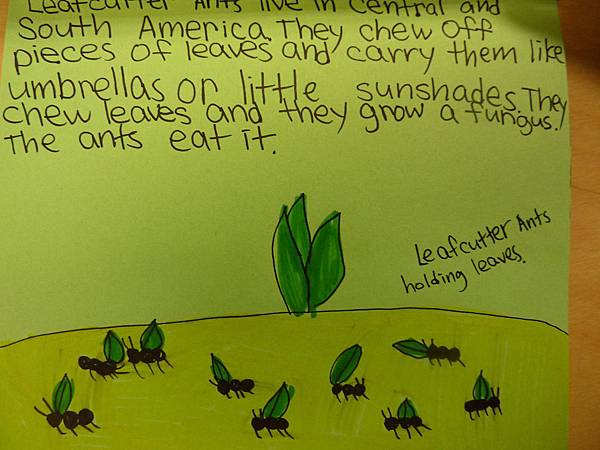 Leafcutter Ants live in Central and
South America. They chew off
pieces of leaves and carry them like
umbrellas or little sunshades. They
chew leaves and they grow a fungus.
The ants eat it.
Leafcutter Ants
holding leaves.